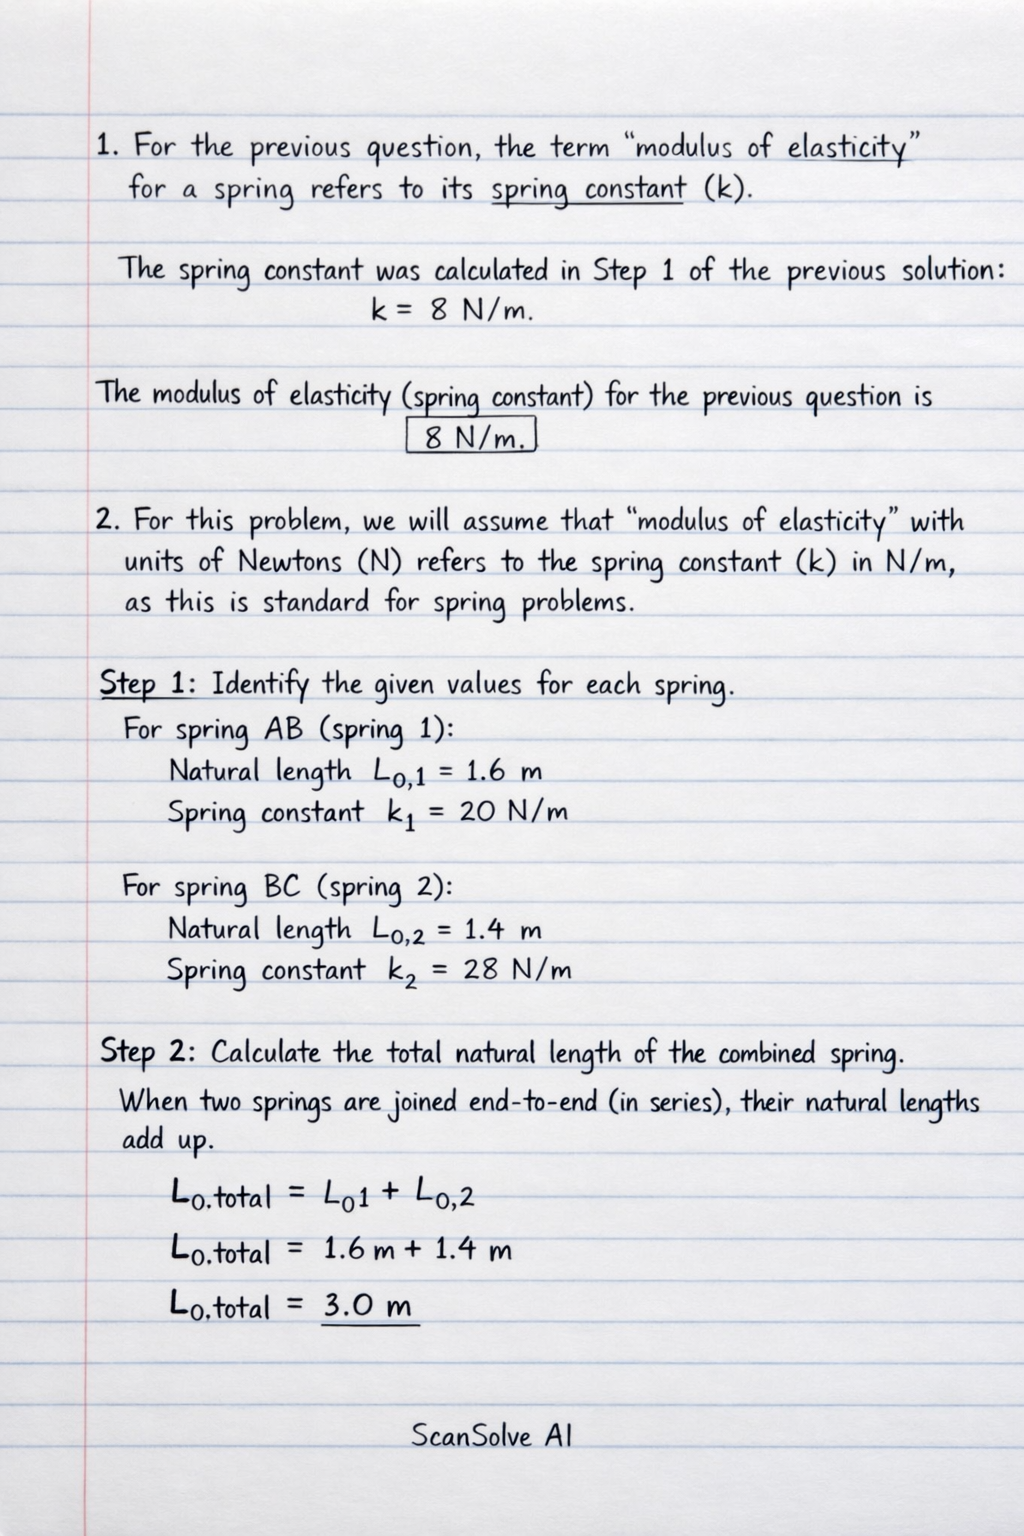 1. For the previous question, the term “modulus of elasticity”
for a spring refers to its spring constant (k).
The spring constant was calculated in Step 1 of the previous solution:
k = 8 N/m.
The modulus of elasticity (spring constant) for the previous question is
8 N/m.
2. For this problem, we will assume that “modulus of elasticity” with
units of Newtons (N) refers to the spring constant (k) in N/m,
as this is standard for spring problems.
Step 1: Identify the given values for each spring.
For spring AB (spring 1):
Natural length L₀,₁ = 1.6 m
Spring constant k₁ = 20 N/m
For spring BC (spring 2):
Natural length L₀,₂ = 1.4 m
Spring constant k₂ = 28 N/m
Step 2: Calculate the total natural length of the combined spring.
When two springs are joined end-to-end (in series), their natural lengths
add up.
L₀.total = L₀1 + L₀,2
L₀.total = 1.6 m + 1.4 m
L₀.total = 3.0 m
ScanSolve AI